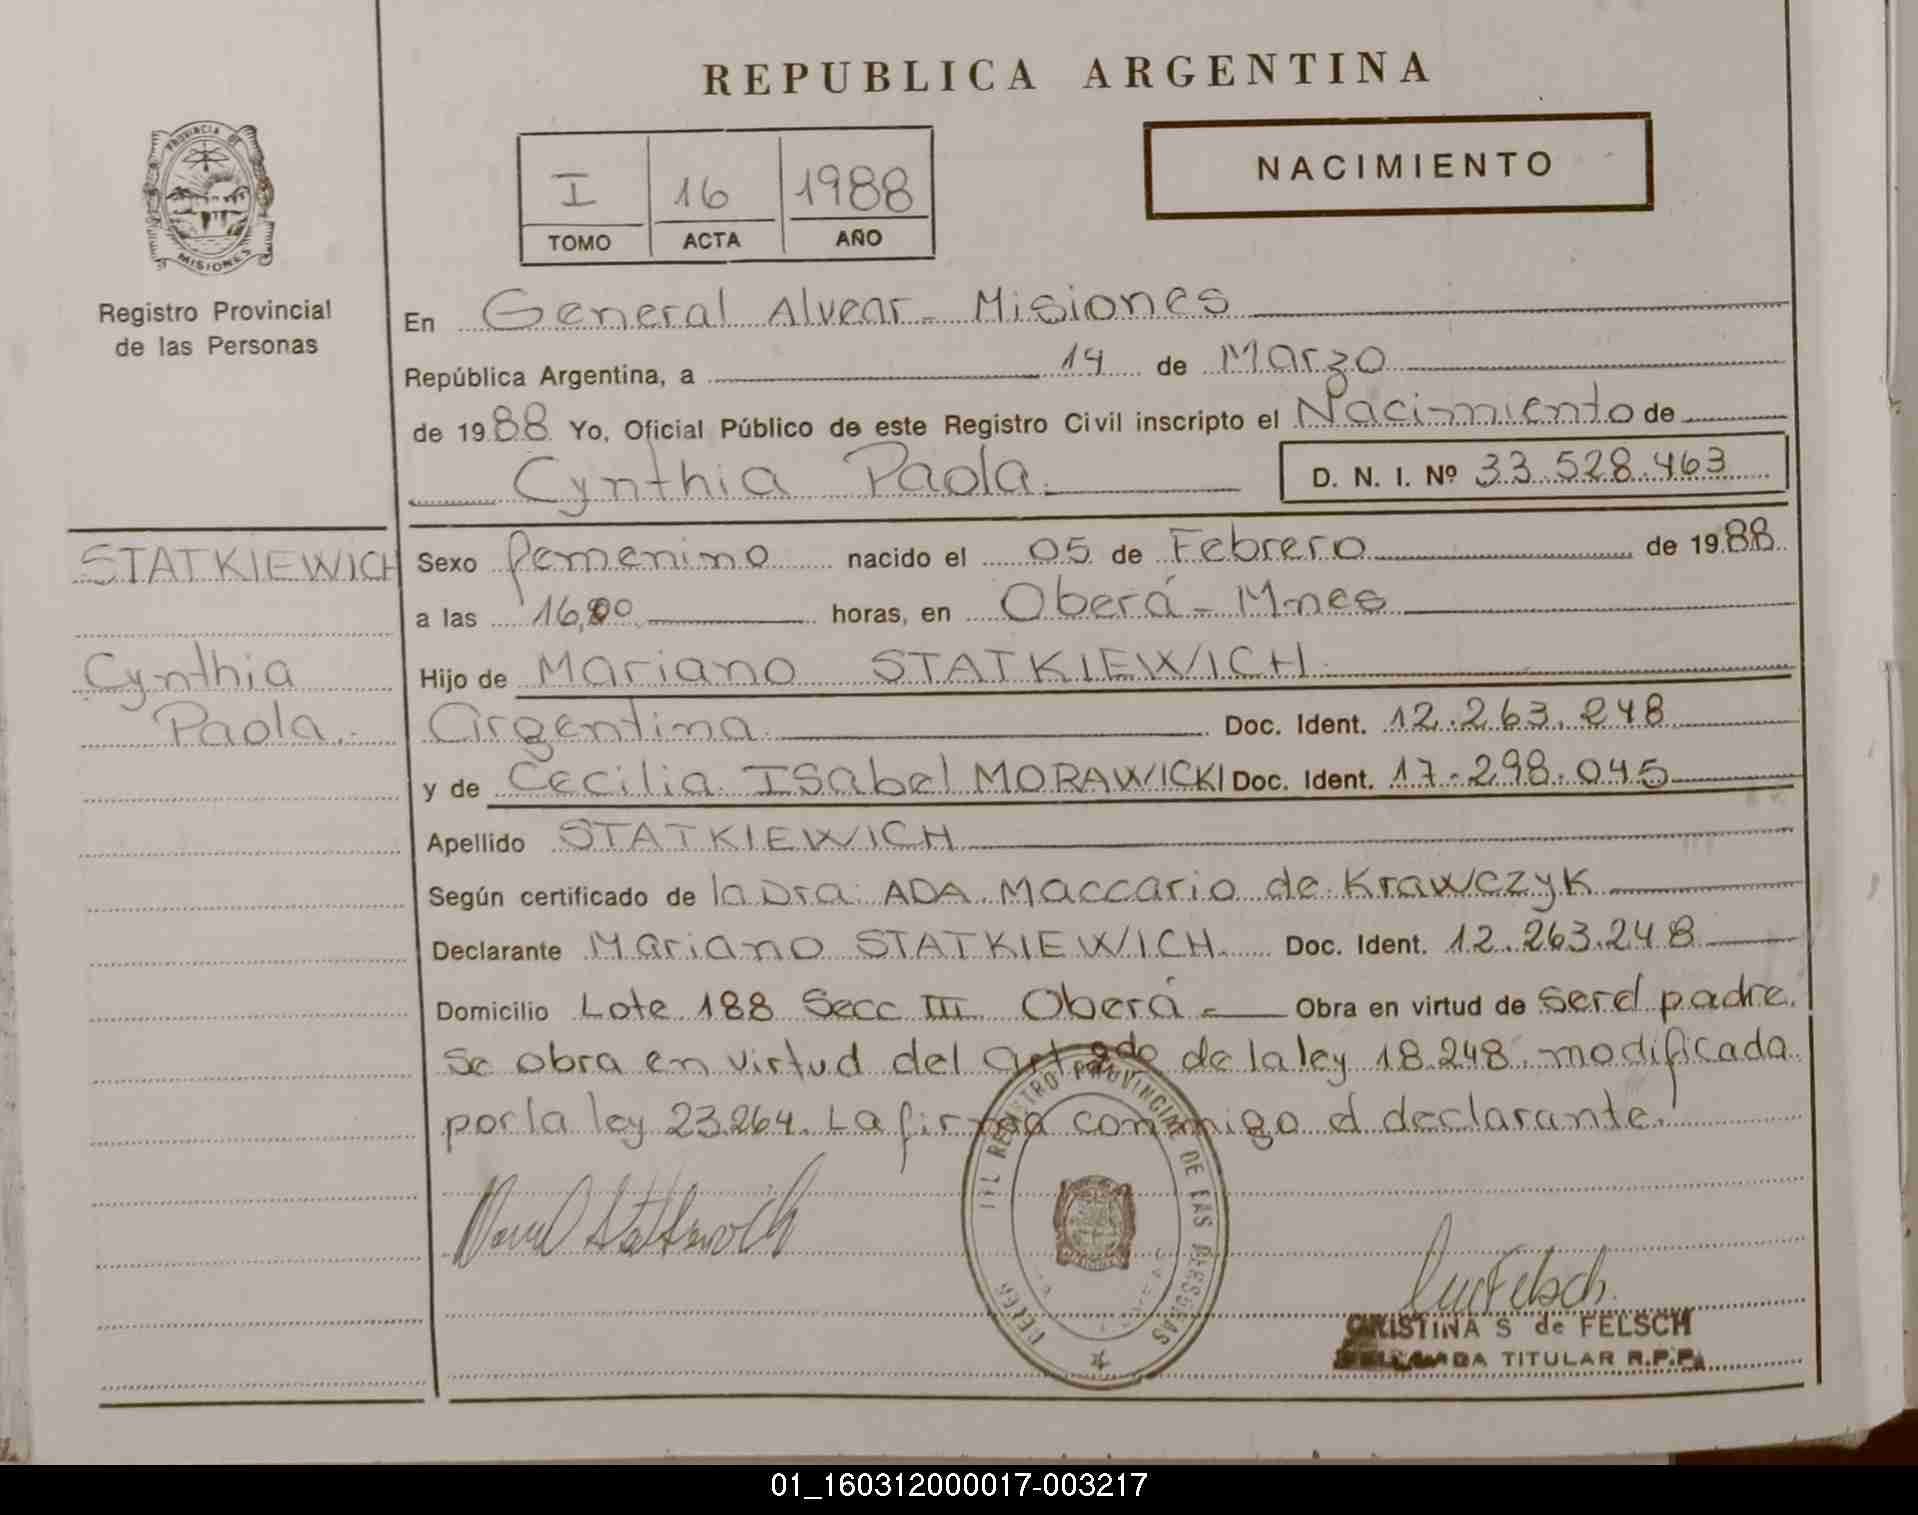 REPUBLICA ARGENTINA
PROVINCIA DE
MISIONES
Registro Provincial
de las Personas
I 16 1988
TOMO ACTA AÑO
NACIMIENTO
En General Alvear - Misiones
República Argentina, a 14 de Marzo
de 1988 Yo, Oficial Público de este Registro Civil inscripto el Nacimiento de
Cynthia Paola. D. N. I. Nº 33.528.463
STATKIEWICH
Cynthia
Paola.-
Sexo femenino nacido el 05 de Febrero de 1988
a las 16,00 horas, en Oberá - M-nes
Hijo de Mariano STATKIEWICH
Argentina Doc. Ident. 12.263.248
y de Cecilia Isabel MORAWICKI Doc. Ident. 17.298.045
Apellido STATKIEWICH
Según certificado de la Dra. ADA Maccario de Krawczyk
Declarante Mariano STATKIEWICH. Doc. Ident. 12.263.248
Domicilio Lote 188 Secc III Oberá - Obra en virtud de ser el padre.
Se obra en virtud del art 2do de la ley 18.248. modificada
por la ley 23.264. La firma conmigo el declarante.
REGISTRO PROVINCIAL DE LAS PERSONAS
CRISTINA S de FELSCH
TITULAR R.P.P.
01_160312000017-003217